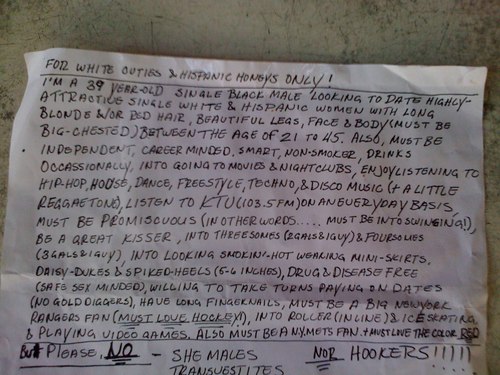 FOR WHITE CUTIES & HISPANIC HONEYS ONLY!
I'M A 39 YEAR-OLD SINGLE BLACK MALE LOOKING TO DATE HIGHLY-
ATTRACTIVE SINGLE WHITE & HISPANIC WOMEN WITH LONG
BLONDE NOR RED HAIR, BEAUTIFUL LEGS, FACE & BODY (MUST BE
BIG-CHESTED) BETWEEN THE AGE OF 21 TO 45. ALSO, MUST BE
INDEPENDENT, CAREER MINDED, SMART, NON-SMOKER, DRINKS
OCCASSIONALLY, INTO GOING TO MOVIES & NIGHTCLUBS, ENJOY LISTENING TO
HIP-HOP, HOUSE, DANCE, FREESTYLE, TECHNO, & DISCO MUSIC (+ A LITTLE
REGGAETON), LISTEN TO KTU (103.5 FM) ON AN EVERYDAY BASIS,
MUST BE PROMISCUOUS (IN OTHER WORDS..... MUST BE INTO SWINGING!),
BE A GREAT KISSER, INTO THREESOMES (2 GALS & 1 GUY) & FOURSOMES
(3 GALS & 1 GUY), INTO LOOKING SMOKIN'-HOT WEARING MINI-SKIRTS,
DAISY-DUKES & SPIKED-HEELS (5-6 INCHES), DRUG & DISEASE FREE
(SAFE SEX MINDED), WILLING TO TAKE TURNS PAYING ON DATES
(NO GOLD DIGGERS), HAVE LONG FINGERNAILS, MUST BE A BIG NEW YORK
RANGERS FAN (MUST LOVE HOCKEY!), INTO ROLLER (INLINE) & ICE SKATING
& PLAYING VIDEO GAMES. ALSO MUST BE A N.Y. METS FAN. + MUST LOVE THE COLOR RED
BUT PLEASE, NO - SHE MALES NOR HOOKERS!!!!!
TRANSVESTITES